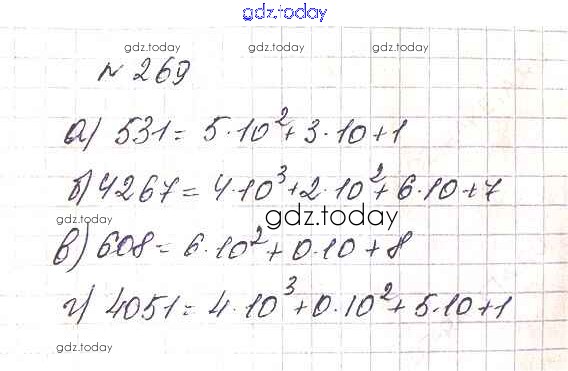 gdz.today
gdz.today gdz.today gdz.today
№ 269
а) 531 = 5·10² + 3·10 + 1
б) 4267 = 4·10³ + 2·10² + 6·10 + 7
gdz.today
gdz.today
в) 608 = 6·10² + 0·10 + 8
gdz.today
г) 4051 = 4·10³ + 0·10² + 5·10 + 1
gdz.today